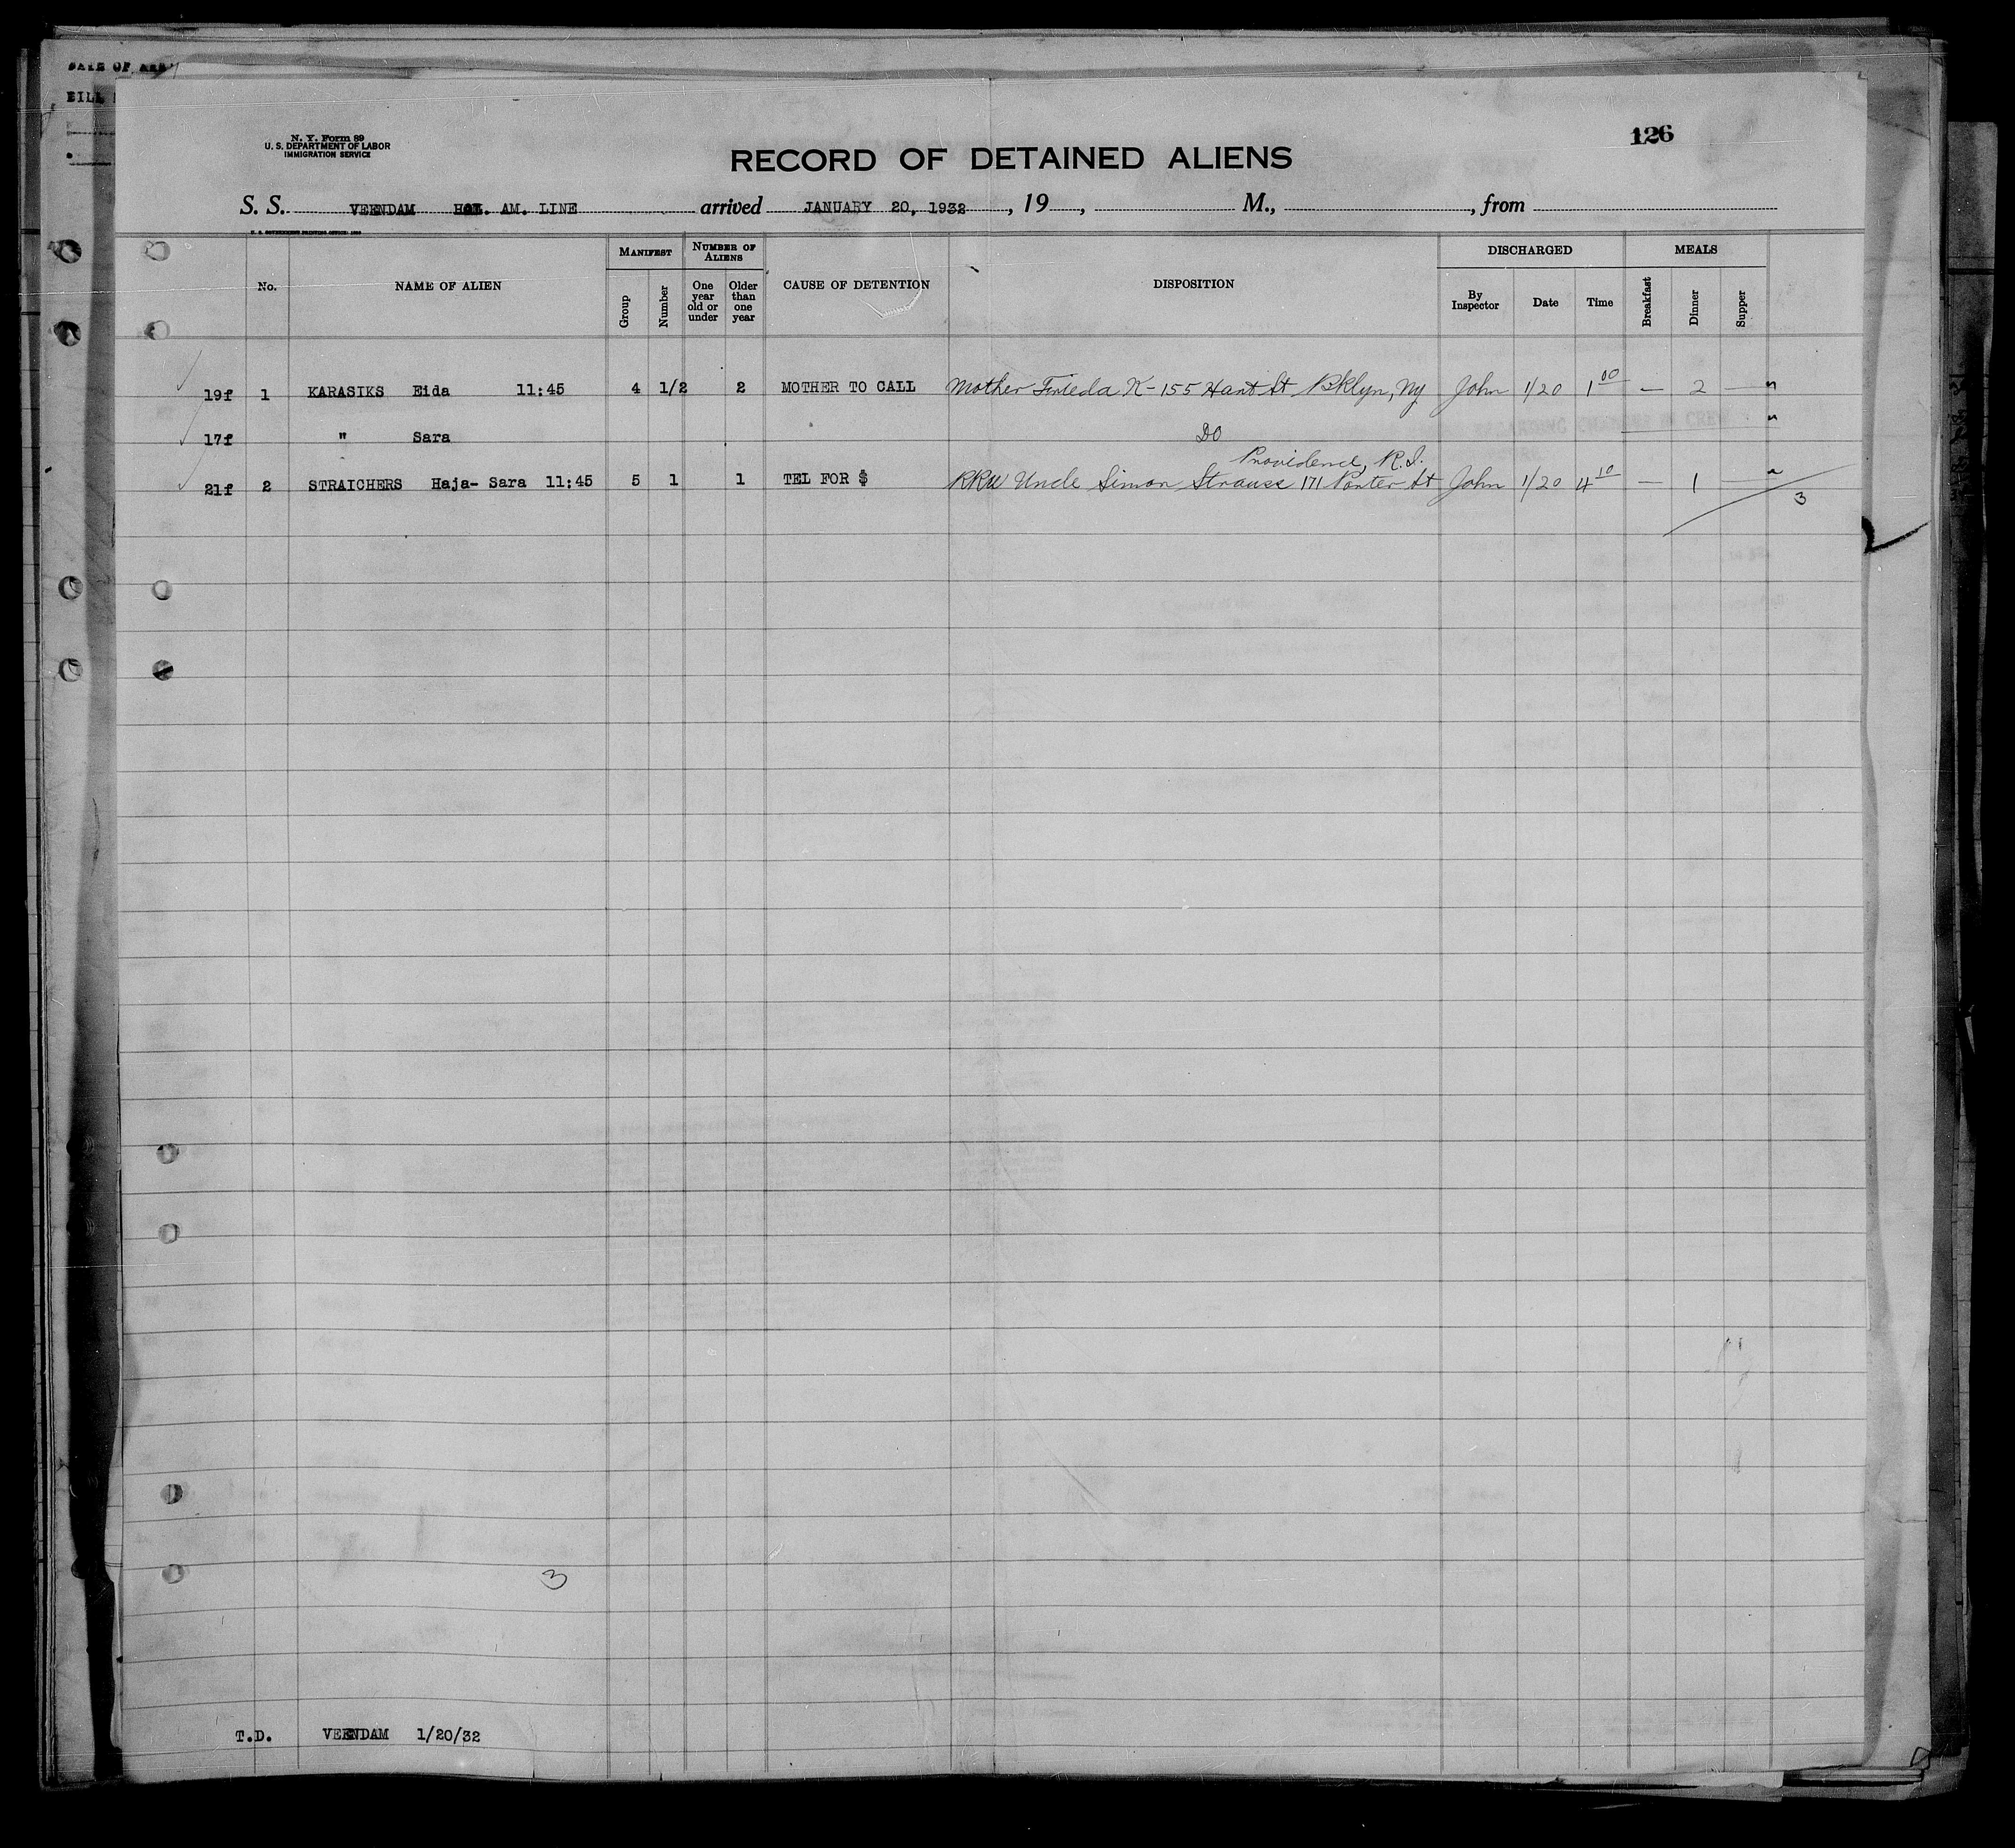 DATE OF
BILL
N. Y. Form 89
U. S. DEPARTMENT OF LABOR
IMMIGRATION SERVICE
126
RECORD OF DETAINED ALIENS
S. S. VEENDAM HOL. AM. LINE arrived JANUARY 20, 1932, 19, M., , from
U. S. GOVERNMENT PRINTING OFFICE: 1930
No. NAME OF ALIEN MANIFEST Group Number NUMBER OF ALIENS One year old or under Older than one year CAUSE OF DETENTION DISPOSITION DISCHARGED By Inspector Date Time MEALS Breakfast Dinner Supper
19f 1 KARASIKS Eida 11:45 4 1/2 2 MOTHER TO CALL Mother Frieda K - 155 Hart St Bklyn, Ny John 1/20 1 00 — 2 —
17f " Sara DO
Providence, R.I.
21f 2 STRAICHERS Haja- Sara 11:45 5 1 1 TEL FOR $ RRW Uncle Simon Strauss 171 Porter St John 1/20 4 10 — 1 —
3
3
T.D. VEENDAM 1/20/32